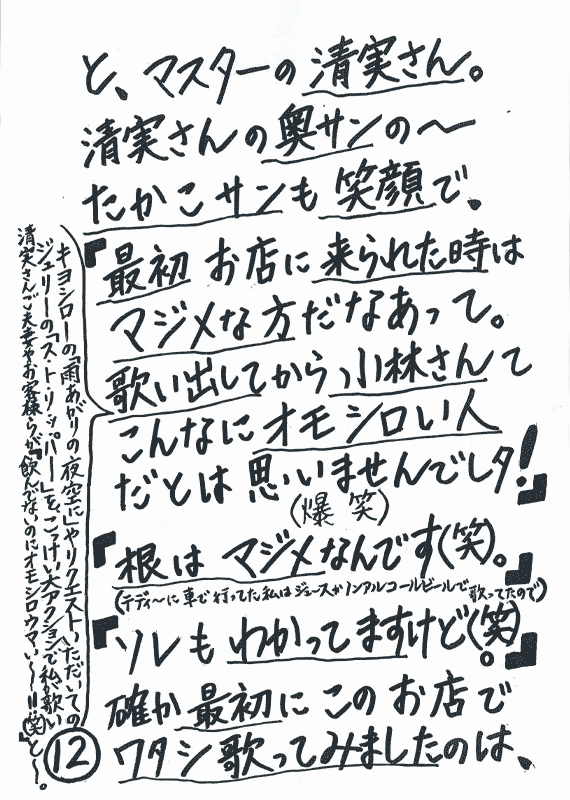 と、マスターの清実さん。
清実さんの奥サンの〜
たかこサンも笑顔で。
『最初お店に来られた時は
マジメな方だなあって。
歌い出してから、小林さんて
こんなにオモシロい人
だとは思いませんでしタ!』
(爆笑)
『根はマジメなんです(笑)。』
(テディ〜に車で行ってた私はジュースかノンアルコールビールで歌ってたので)
『ソレもわかってますけど(笑)。』
確か最初にこのお店で
ワタシ歌ってみましたのは、
キヨシローの「雨あがりの夜空に」やリクエストいただいての
ジュリーの「ス・ト・リ・ッ・パ・ー」を、こっけい大アクションで私が歌い
清実さんご夫妻やお客様らが『飲んでないのにオモシロウマい〜!!(笑)』と〜。
12